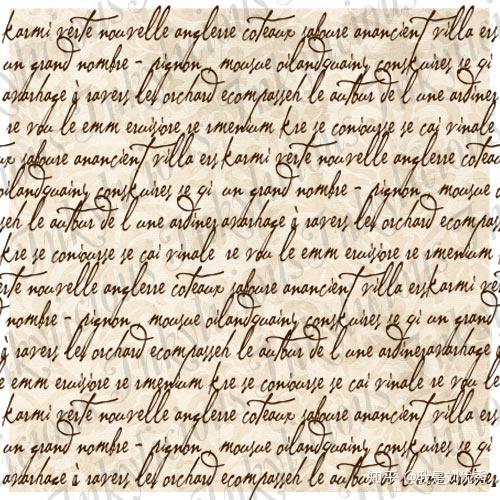 karmi verte nouvelle anglerre coteaux saboure anancient villa ers
un grand nombre - pignon, mousue oilandquainy conskuires se qi
avarhage à ravers les orchard ecompasseh le autour de l une ardiner
re vou le emm eruisiore re rmenium kre se coniousse se cai vinale
x saboure anancient villa erskarmi verte nouvelle anglerre coteau
oilandquainy conskuires se qi un grand nombre - pignon, mousue
h le autour de l une ardineravarhage à ravers les orchard ecompass
kre se coniousse se cai vinale re vou le emm eruisiore re rmenium
rte nouvelle anglerre coteaux saboure anancient villa erskarmi ve
nombre - pignon, mousue oilandquainy conskuires se qi un grand
à ravers les orchard ecompasseh le autour de l une ardineravarhage
e emm eruisiore re rmenium kre se coniousse se cai vinale re vou l
karmi verte nouvelle anglerre coteaux saboure anancient villa ers
un grand nombre - pignon, mousue oilandquainy conskuires se qi
avarhage à ravers les orchard ecompasseh le autour de l
知乎 @我是刘优秀